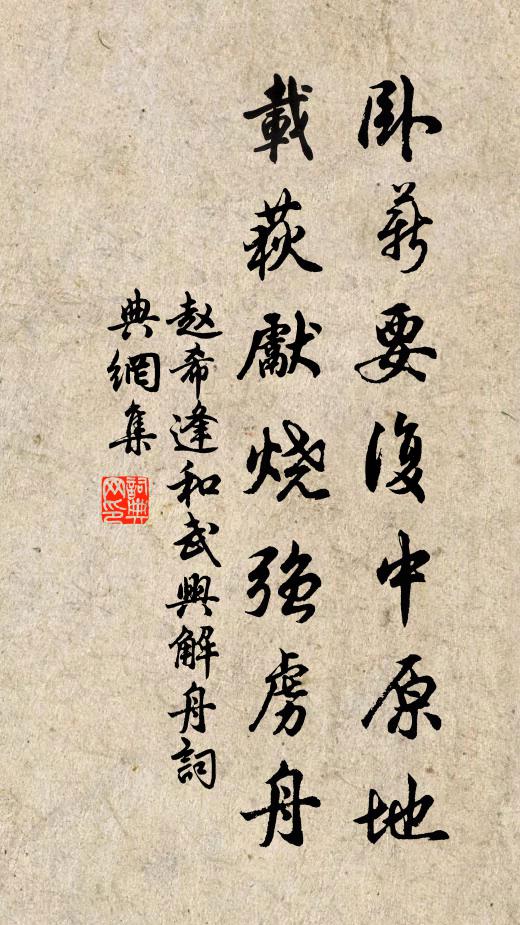 卧薪要復中原地
載荻獻烧強虜舟
赵希逢和武興解舟詞
典網集
詞典网印